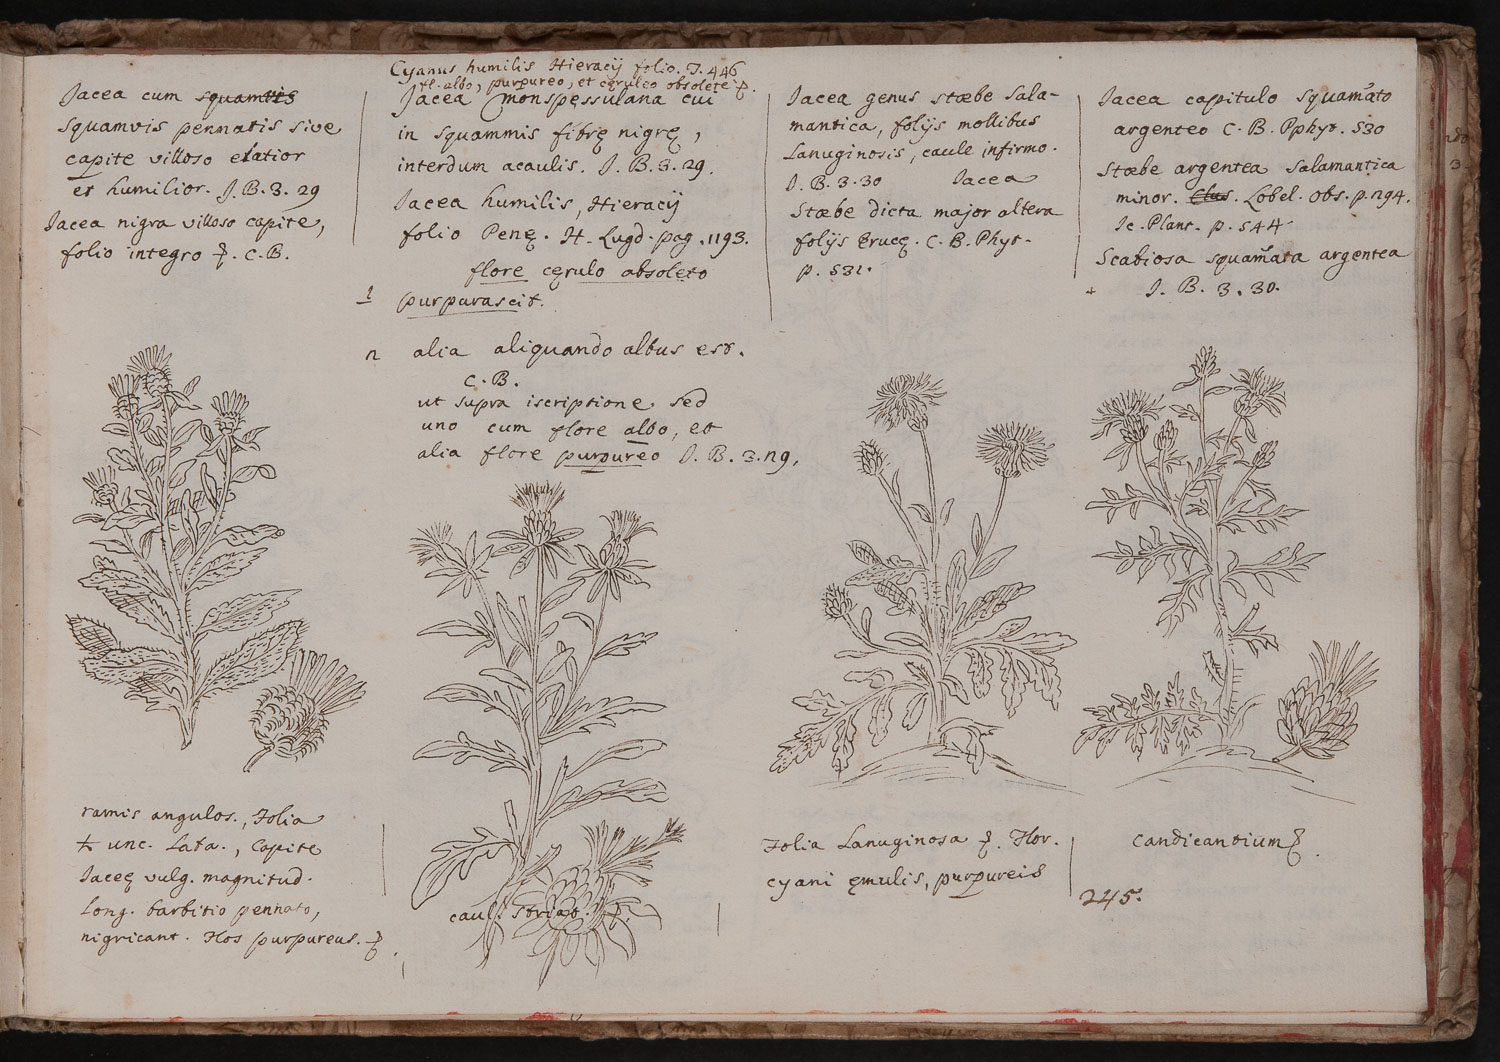 Jacea cum squamvis
squamvis pennatis sive
capite villoso elatior
et humilior. J. B. 3. 29
Jacea nigra villoso capite,
folio integro ꝑ. C. B.
Cyanus humilis Hieracij folio. T. 446
fl. albo, purpureo, et cęruleo obsolete ꝑ.
Jacea monspessulana cui
in squammis fibrę nigrę,
interdum acaulis. J. B. 3. 29.
Jacea humilis, Hieracij
folio Penę. H. Lugd. pag. 1193.
flore cęrulo absoleto
1 purpurascit.
2 alia aliquando albus est.
C. B.
ut supra iscriptione sed
uno cum flore albo, et
alia flore purpureo J. B. 3. 29.
Jacea genus stœbe Sala-
mantica, folijs mollibus
Lanuginosis, caule infirmo.
J. B. 3. 30 Jacea
Stœbe dicta major altera
folijs Erucę. C. B. Phyt.
p. 531.
Jacea capitulo squamato
argenteo C. B. Pphyt. 530
Stœbe argentea Salamantica
minor. Clus. Lobel. obs. p. 294.
Ic. Plant. p. 544
Scabiosa squamata argentea
+ J. B. 3. 30.
ramis angulos., Folia
unc. Lata., Capite
Jaceę vulg. magnitud.
Long. barbitio pennato,
nigricant. Flos purpureus. ꝑ.
caul. striat. ꝑ.
Folia Lanuginosa ꝑ. Flor.
cyani ęmulis, purpureis
Candicantium ꝑ.
245.